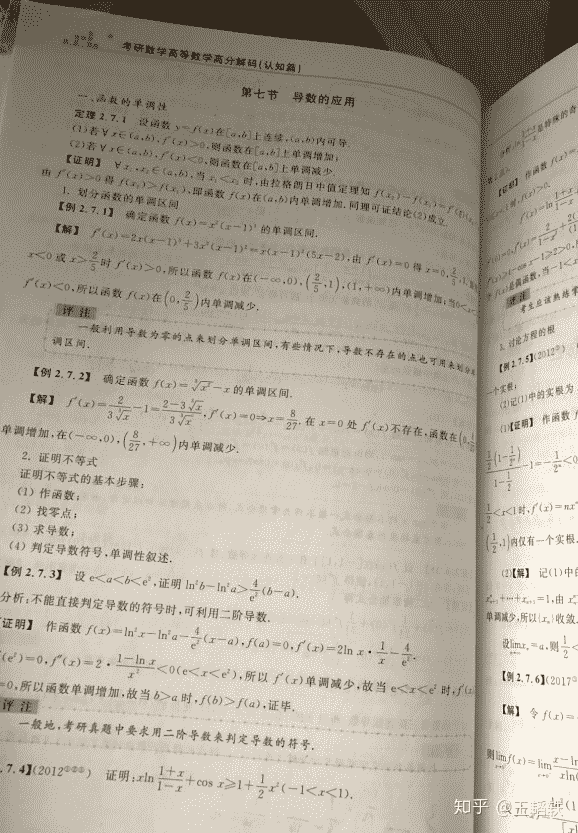 考研数学高等数学高分解码(认知篇)
第七节 导数的应用
一、函数的单调性
定理 2.7.1 设函数 y=f(x)在[a,b]上连续,(a,b)内可导.
(1)若∀x∈(a,b),f′(x)>0,则函数在[a,b]上单调增加;
(2)若∀x∈(a,b),f′(x)<0,则函数在[a,b]上单调减少.
【证明】 ∀x₁,x₂∈(a,b),当 x₁<x₂时,由拉格朗日中值定理知 f(x₂)-f(x₁)=f′(ξ)
由 f′(x)>0 得 f(x₂)>f(x₁),即函数 f(x)在(a,b)内单调增加.同理可证结论(2)成立.
1. 划分函数的单调区间
【例 2.7.1】 确定函数 f(x)=x²(x-1)³ 的单调区间.
【解】 f′(x)=2x(x-1)³+3x²(x-1)²=x(x-1)²(5x-2),由 f′(x)=0 得 x=0,2/5,1,
x<0 或 x>2/5 时 f′(x)>0,所以函数 f(x)在(-∞,0),(2/5,1),(1,+∞)内单调增加;当0<x
f′(x)<0,所以函数 f(x)在(0,2/5)内单调减少.
评 注
一般利用导数为零的点来划分单调区间,有些情况下,导数不存在的点也可用来划分单
调区间.
【例 2.7.2】 确定函数 f(x)=∛x²-x 的单调区间.
【解】 f′(x)=2/(3∛x)-1=(2-3∛x)/(3∛x),f′(x)=0⇒x=8/27.在 x=0 处 f′(x)不存在,函数在
单调增加,在(-∞,0),(8/27,+∞)内单调减少.
2. 证明不等式
证明不等式的基本步骤:
(1) 作函数;
(2) 找零点;
(3) 求导数;
(4) 判定导数符号,单调性叙述.
【例 2.7.3】 设 e<a<b<e²,证明 ln²b-ln²a>4/e²(b-a).
分析:不能直接判定导数的符号时,可利用二阶导数.
证明】 作函数 f(x)=ln²x-ln²a-4/e²(x-a),f(a)=0,f′(x)=2ln x·1/x-4/e².
(e²)=0,f″(x)=2·(1-ln x)/x²<0(e<x<e²),所以 f′(x)单调减少,故当 e<x<e² 时,f′(x)
=0,所以函数单调增加,故当 b>a 时,f(b)>f(a),证毕.
评 注
一般地,考研真题中要求用二阶导数来判定导数的符号.
.7.4】(2012①②③) 证明:xln (1+x)/(1-x)+cos x≥1+1/2x²(-1<x<1).
【证明】 作函数 f(x)=
评 注
考生应该熟练掌
3. 讨论方程的根
【例 2.7.5】(2012②)
一个实根;
(2)记(1)中的实根为
(1)【证明】 作函数 f
1/2<x<1时,f′(x)=nx
(1/2,1)内仅有一个实根.
(2)【解】 记(1)中的
单调减少,所以{xₙ}收敛.
【例 2.7.6】(2017
【解】 令 f(x)=
知乎 @玉韬轶